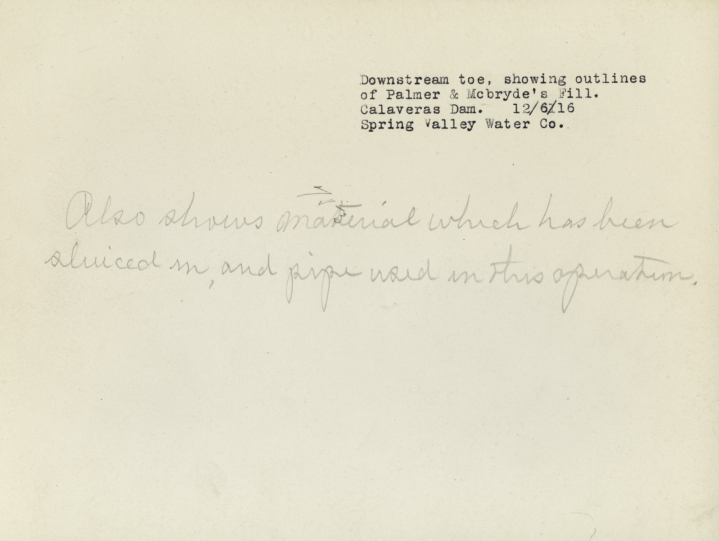 Downstream toe, showing outlines
of Palmer & Mcbryde's Fill.
Calaveras Dam. 12/6/16
Spring Valley Water Co.
Also shows material which has been
sluiced in, and pipe used in this operation.